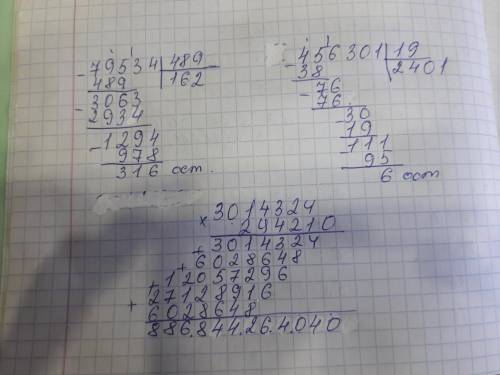 79534 | 489
489 | 162
3063
2934
1294
978
316 ост.
456301 | 19
38 | 2401
76
76
30
19
111
95
6 ост
× 3014324
294210
+ 3014324
+ 6028648
+ 12057296
+ 27128916
6028648
886.844.26.4.040